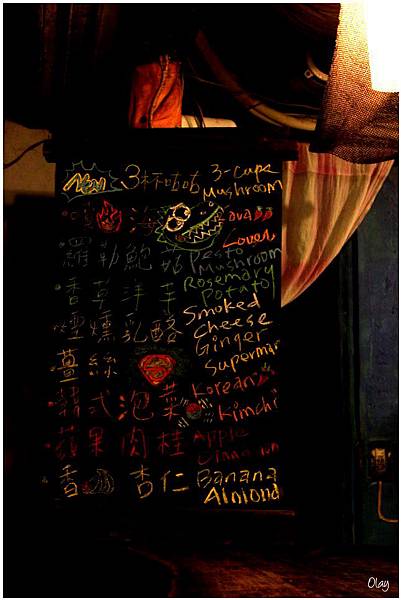 New 3杯咕咕 3-Cups Mushroom
Lava
Lover
羅勒鮑菇 Pesto Mushroom
香草洋芋 Rosemary Potato
煙燻乳酪 Smoked Cheese
薑絲 Ginger Superman
韓式泡菜 Korean Kimchi
蘋果肉桂 Apple Cinnamon
香 杏仁 Banana Almond
Olay